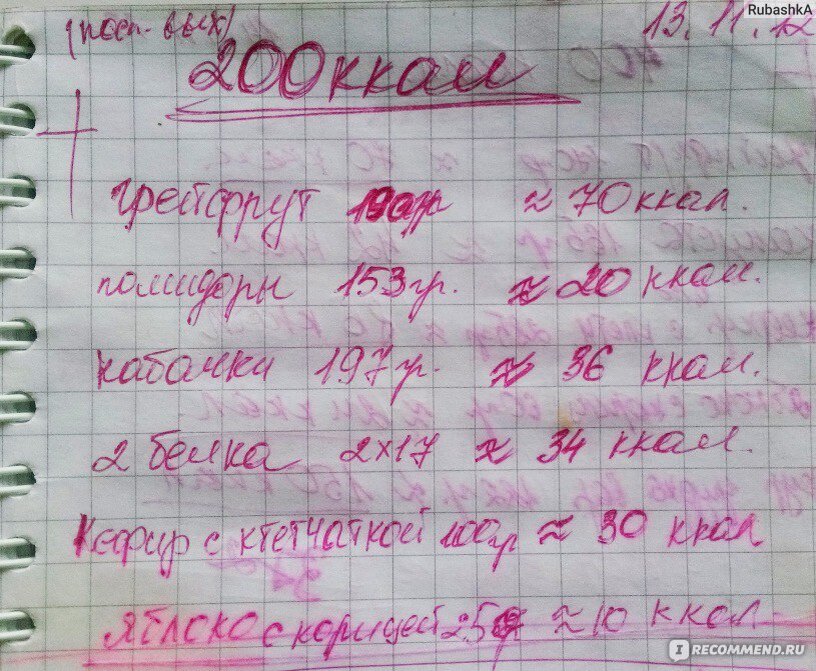 RubashkA
(посл. вых) 13.11.12
200 ккал
грейфрут 190гр ≈ 70 ккал.
помидоры 153 гр. ≈ 20 ккал.
кабачки 197 гр. ≈ 36 ккал.
2 белка 2х17 ≈ 34 ккал.
Кефир с клетчаткой 100гр ≈ 30 ккал
яблоко с корицей 25 ≈ 10 ккал.
IRECOMMEND.RU